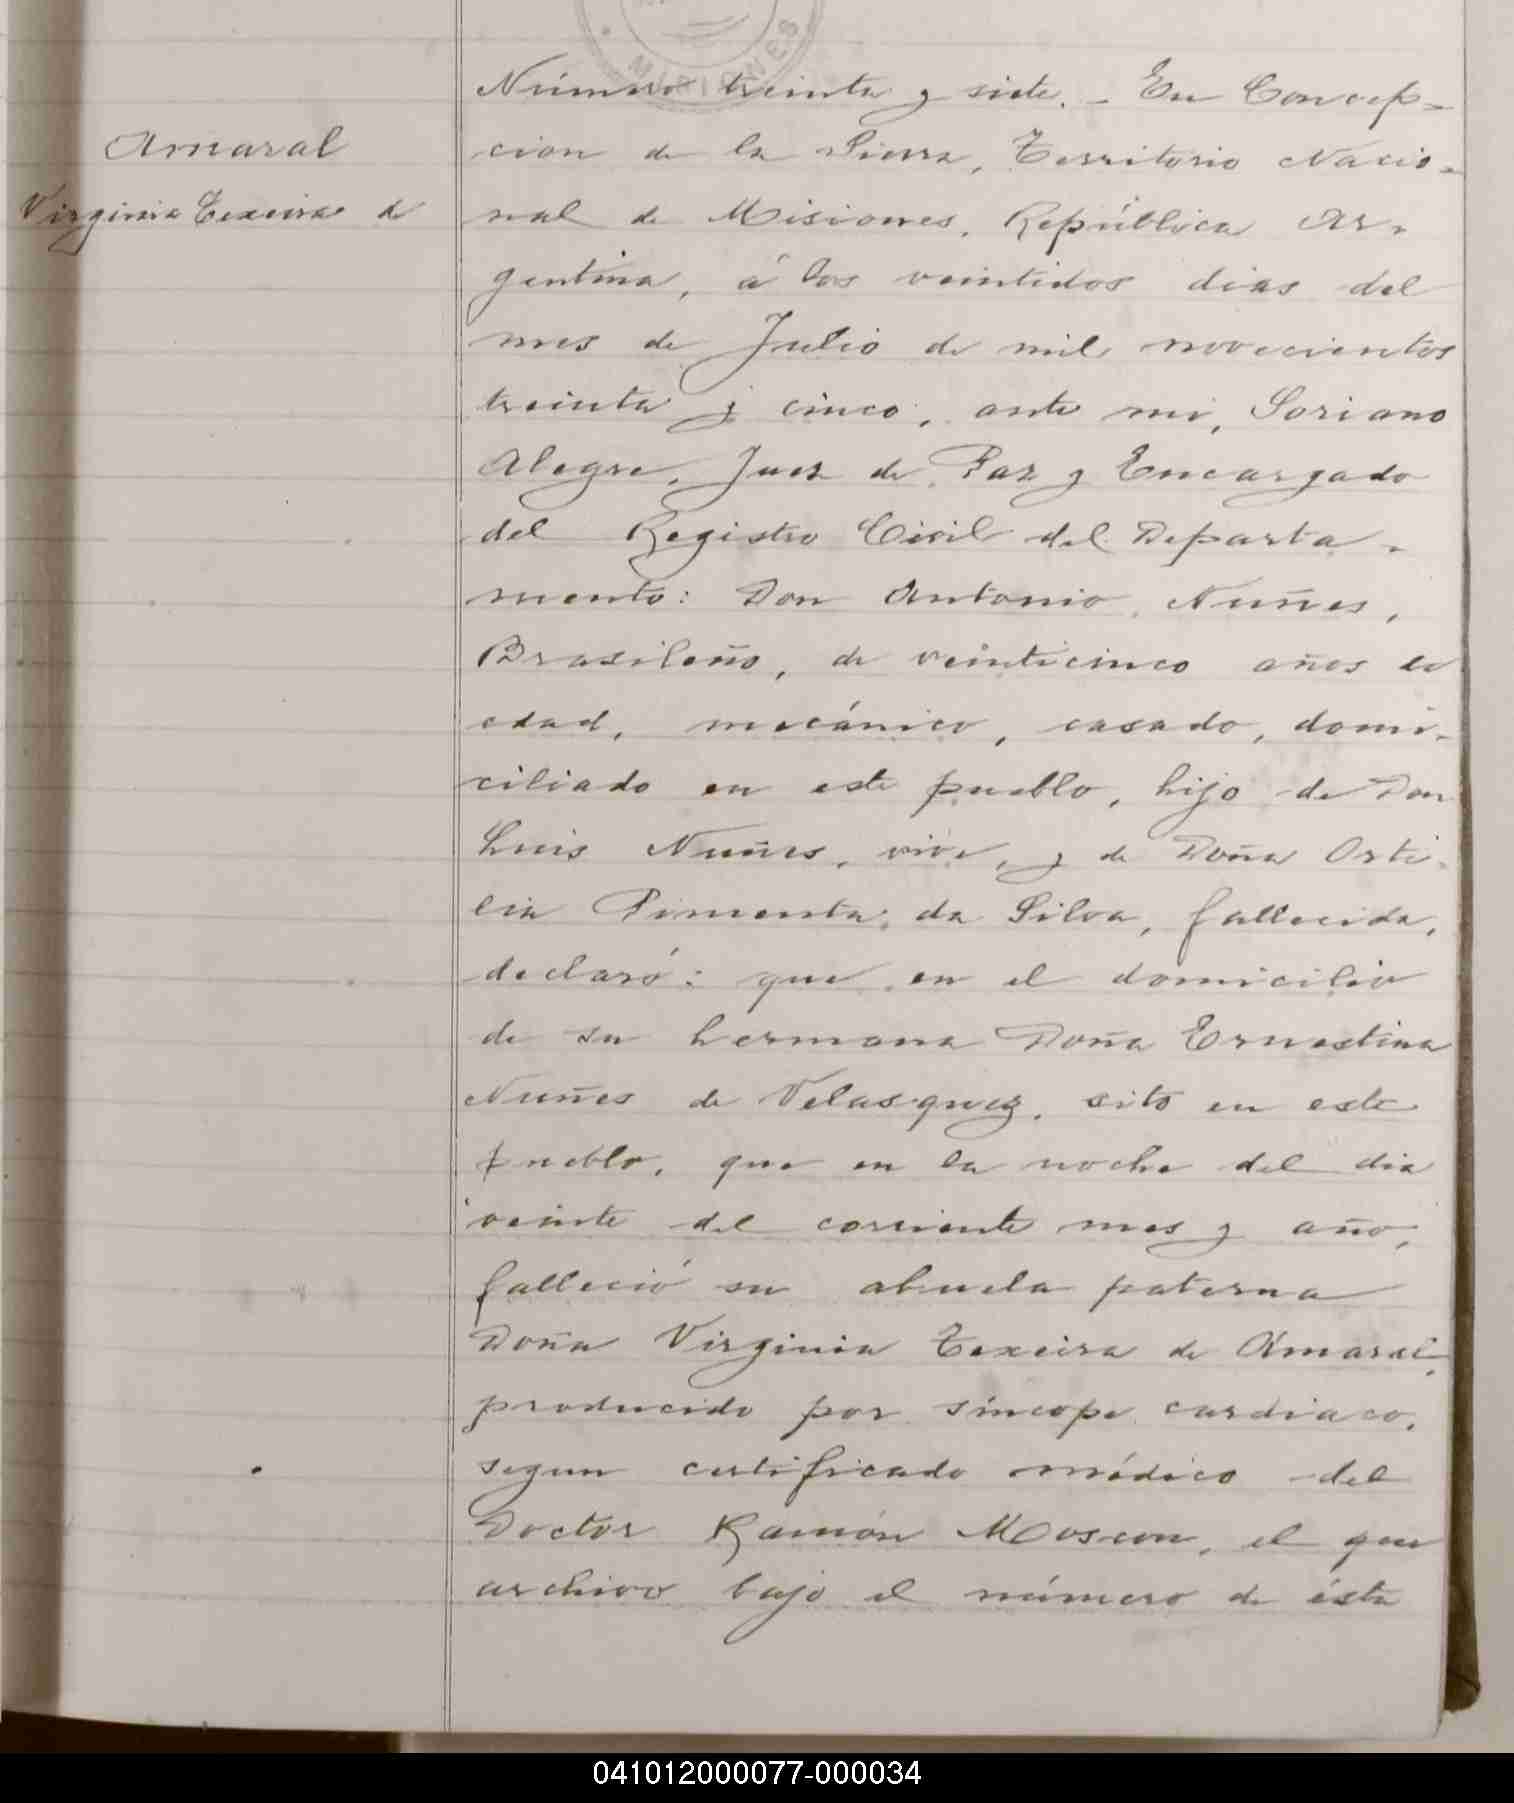 MISIONES
Número treinta y siete. - En Concep-
Amaral
cion de la Sierra, Territorio Nacio-
Virginia Texeira de
nal de Misiones, República Ar-
gentina, á los veintidos dias del
mes de Julio de mil novecientos
treinta y cinco, ante mi, Soriano
Alegre, Juez de Paz y Encargado
del Registro Civil del Departa-
mento: Don Antonio Nuñes,
Brasileño, de veinticinco años de
edad, mecánico, casado, domi-
ciliado en este pueblo, hijo de Don
Luis Nuñes, vive, y de Doña Orti-
lia Pimenta da Silva, fallecida,
declaró: que en el domicilio
de su hermana Doña Ernestina
Nuñes de Velasquez, sito en este
pueblo, que en la noche del dia
veinte del corriente mes y año,
falleció su abuela paterna
Doña Virginia Texeira de Amaral,
producido por síncope cardiaco,
segun certificado médico del
Doctor Ramón Moscon, el que
archivo bajo el número de ésta
041012000077-000034